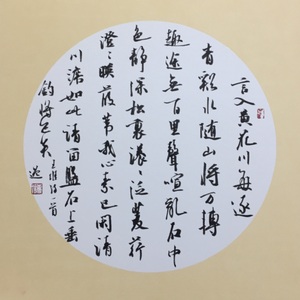 言入黄花川每逐
青谿水随山将万转
趣途無百里聲喧亂石中
色静深松裏漾々泛菱荇
澄々映葭苇我心素已闲清
川澹如此请留盤石上垂
钓将已矣 王维诗一首